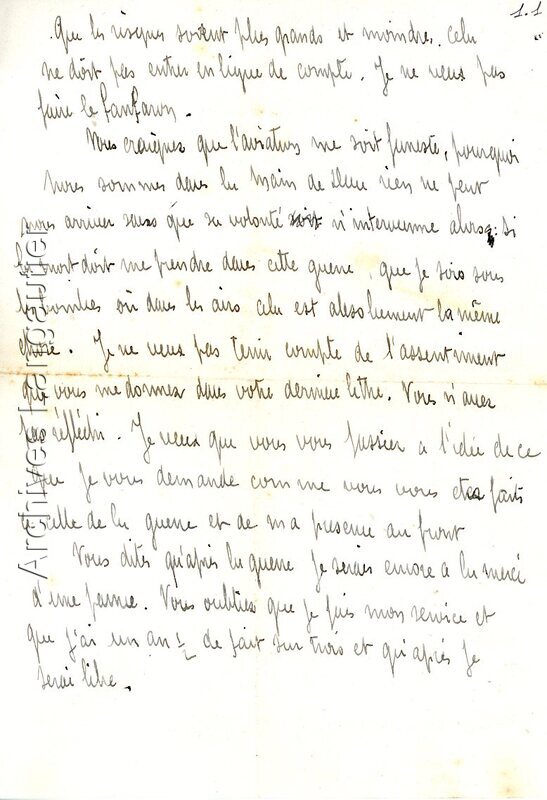 1.1
Que les risques soient plus grands et moindres. cela
ne doit pas entrer en ligne de compte. Je ne veux pas
faire le fanfaron.
Vous craignez que l'aviation me soit funeste, pourquoi
Nous sommes dans la main de Dieu rien ne peut
nous arriver sans que sa volonté soit n'intervienne alors si
la mort doit me prendre dans cette guerre, que je sois sous
les bombes où dans les airs cela est absolument la même
chose. Je ne veux pas tenir compte de l'assentiment
que vous me donnez dans votre dernière lettre. Vous n'avez
pas réfléchi. Je veux que vous vous fassiez a l'idée de ce
que je vous demande comme vous vous etes faits
a celle de la guerre et de ma presence au front
Vous dites qu'après la guerre je serais encore a la merci
d'une panne. Vous oubliez que je fais mon service et
que j'ai un an ½ de fait sur trois et qu'après je
serai libre.
Archives Larigauderi